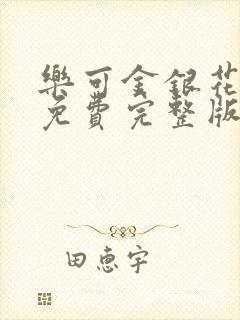 樂可金銀花
免費完整版
田惠宇